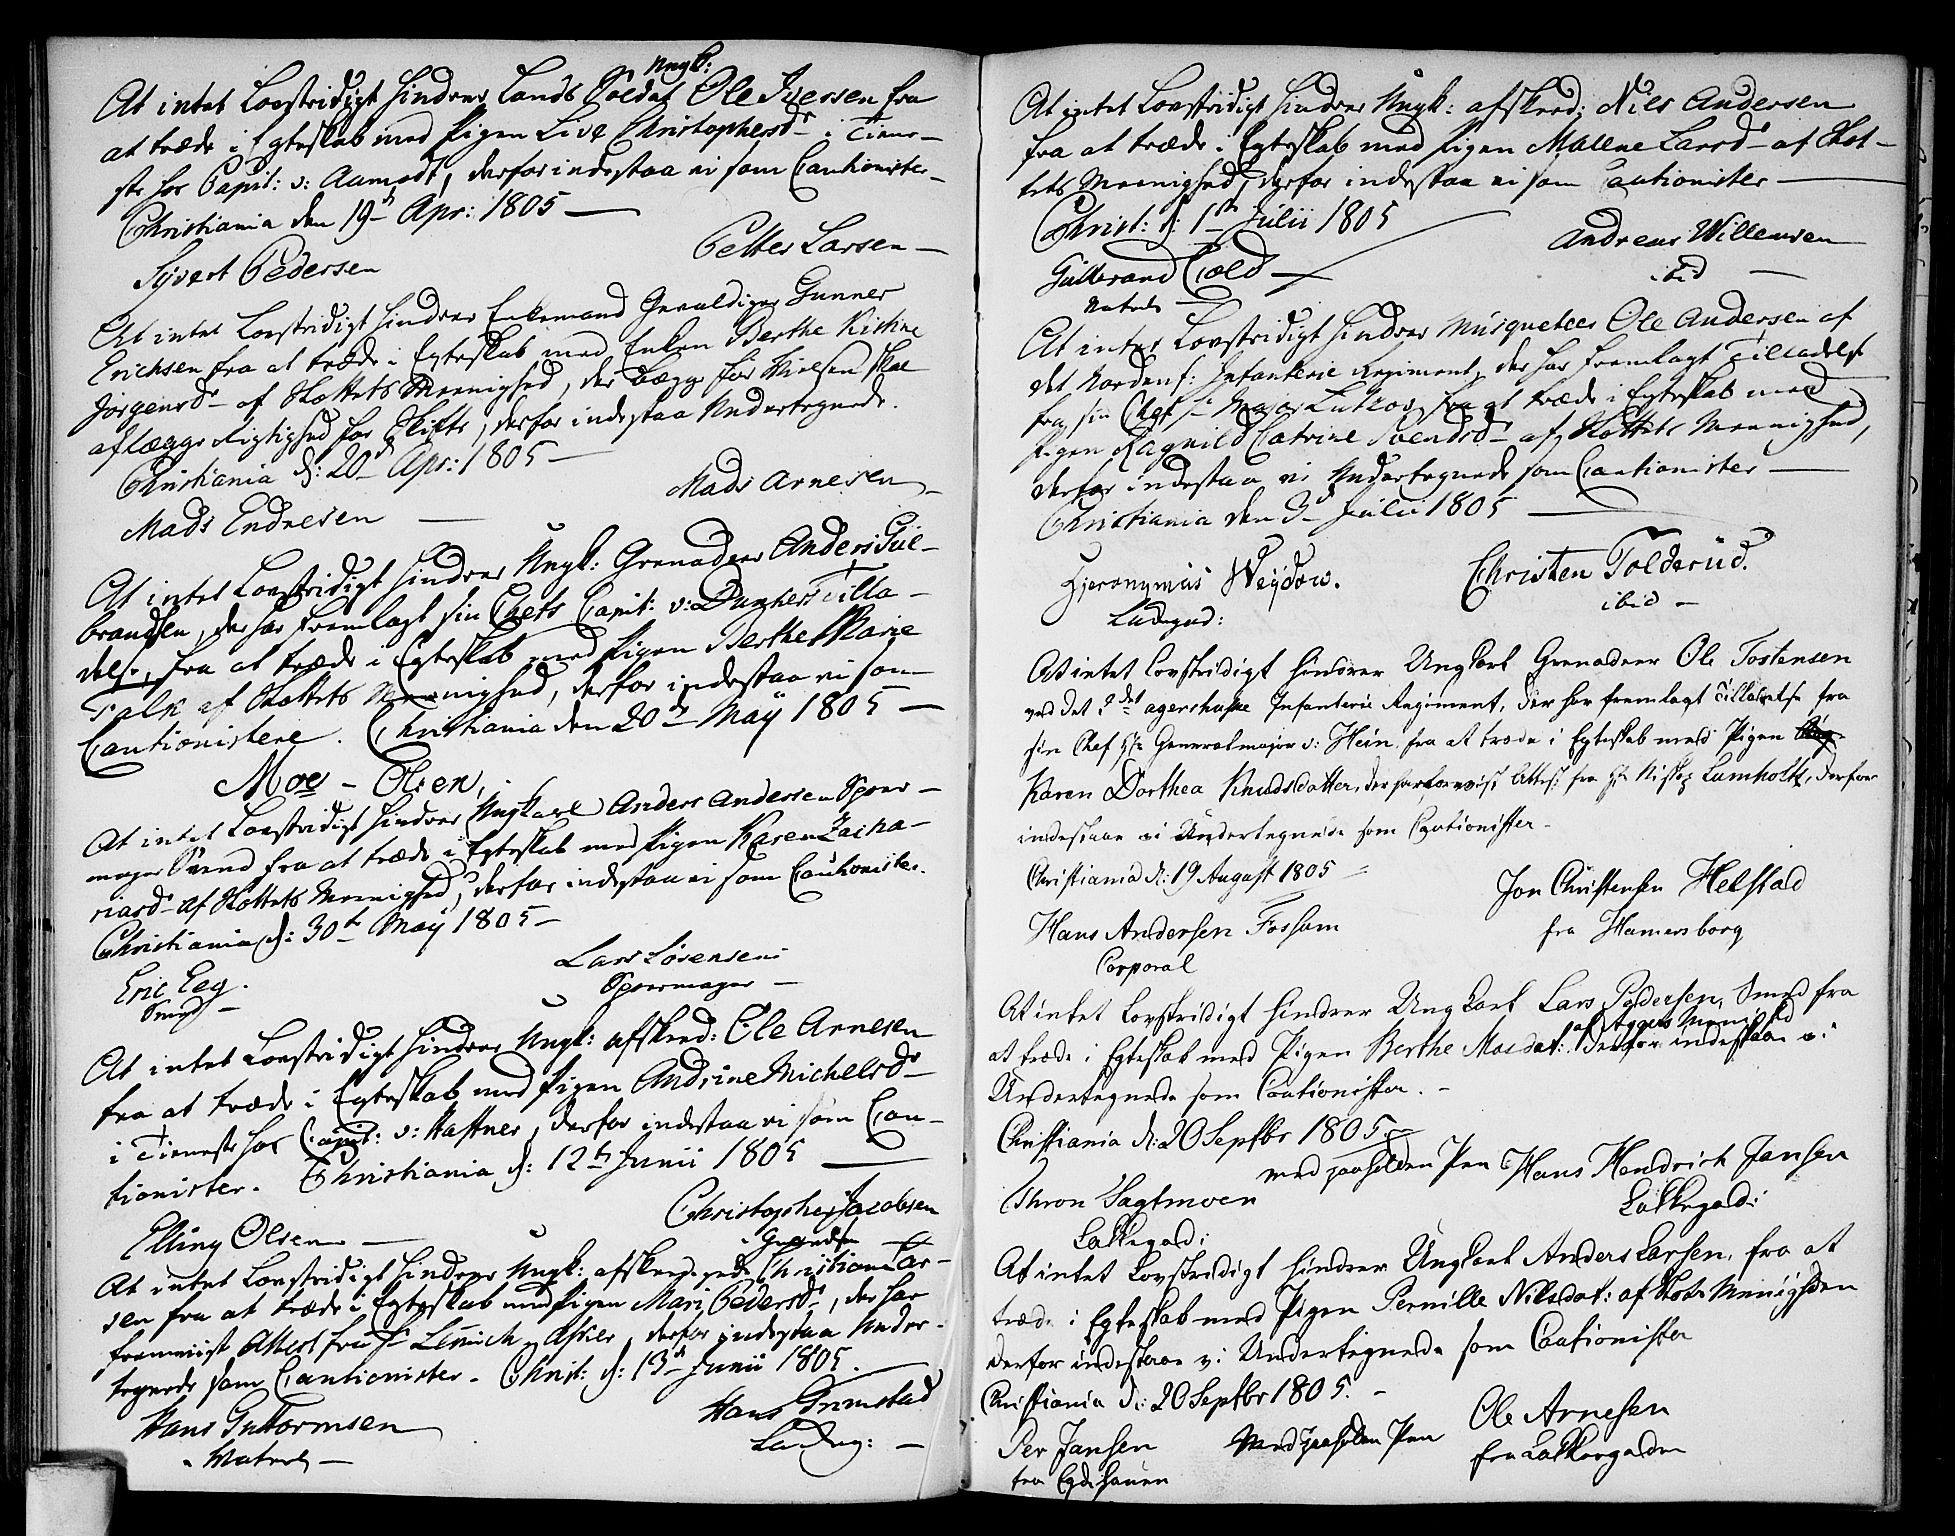 Ungk:
At intet Lovstridigt hindrer Lands Soldat Ole Iversen fra
at træde i Egteskab med Pigen Live Christophersdr i Tiene-
ste hos Capit: v: Aamodt, derfor indestaa vi som Cautionister
Christiania den 19de Apr: 1805
Petter Larsen
Syvert Pedersen
At intet Lovstridigt hindrer Enkemand Gevaldiger Gunner
Erichsen fra at træde i Egteskab med Enken Berthe Kistine
Jörgensdr af Slottets Meenighed, der begge før Vielsen skal
aflægge Rigtighed for Skifte, derfor indestaa Undertegnede.
Christiania d: 20de Apr: 1805
Mads Arnesen
Mads Endresen
At intet Lovstridigt hindrer Ungk: Grenadeer Anders Gul-
brandsen, der har fremlagt sin Chefs Capit: v: Tilla-
delse, fra at træde i Egteskab med Pigen Berthe Marie
Falk af Slottets Meenighed, derfor indestaa vi som
Cautionistere. Christiania den 20de Maÿ 1805
Moe - Olsen,
At intet Lovstridigt hindrer Ungkarl Anders Andersen Spore-
mager Svend fra at træde i Egteskab med Pigen Karen Zacha-
riasdr af Slottets Meenighed, derfor indestaa vi som Cautionister.
Christiania d: 30te Maÿ 1805
Lars Sørensen
Eric Eeg.
Sporemager
Smed
At intet Lovstridigt hindrer Ungk: afskeed: Ole Arnesen
fra at træde i Egteskab med Pigen Andrine Michelsdr
i Tieneste hos Capit: v: Haffner, derfor indestaa vi som Cau-
tionister. Christiania d: 12te Junii 1805
Christopher Jacobsen
Elling Olsen
At intet Lovstridigt hindrer Ungk: afskeedigede Christian Lar-
sen fra at træde i Egteskab med Pigen Mari Pedersdr, der har
fremviist Attest fra Hr Lemich, Asker, derfor indestaa Under-
tegnede som Cautionister. Christ: d: 13de Junii 1805.
Hans Grimstad
Hans Guttormsen
Ladeg:
Waterl
At intet Lovstridigt hindrer Ungk: afskeed: Niels Andersen
fra at træde i Egteskab med Pigen Malene Larsdr af Slot-
tets Meenighed, derfor indestaa vi som Cautionister
Christ: d: 1te Julii 1805
Andreas Willemsen
Gulbrand
ibid
At intet Lovstridigt hindrer Musqueteer Ole Andersen af
det Nordenf: Infanterie Regiment, der har fremlagt Tilladelse
fra sin Chef Hr Major Lützow, fra at træde i Egteskab med
Pigen Ragnild Catrine Svendsdr af Slottets Meenighed,
derfor indestaa vi Undertegnede som Cautionister
Christiania den 3de Julii 1805
Hjeronymus Weydow.
Christen Tolderud.
Ladegad:
ibid
At intet Lovstridigt hindrer Ungkarl Grenadeer Ole Tostensen
ved det 2det agershuske Infanterie Regiment, der har fremlagt Tilladelse fra
sin Chef Hr Generalmajor v: Hein, fra at træde i Egteskab med Pigen
Karen Dorthea Knudsdatter, der har forevist Attest fra Hr Bisp Lumholtz, derfor
indestaae vi Undertegnede som Cautionister
Christiania d: 19 August 1805
Jon Christensen Helstad
Hans Andersen Fossum
fra Hamersborg
Corporal
At intet Lovstridigt hindrer Ungkarl Lars Pedersen, Smed fra
af Aggers Menighed
at træde i Egteskab med Pigen Berthe Madsdat: derfor indestaae vi
Undertegnede som Cautionister.
Christiania d: 20 Septbr 1805
med paaholden Pen Hans Hendrich Jansen
Thron Sagtmoen
Lakkegad:
Lakkegad:
At intet Lovstridigt hindrer Ungkarl Anders Larsen, fra at
træde i Egteskab med Pigen Pernille Nilsdat: af Slots Menigheden
derfor indestaae vi Undertegnede som Cautionister
Christiania d: 20 Septbr 1805.
Ole Arnesen
Per Jansen
Med paaholden Pen
fra Lakkegaden
fra